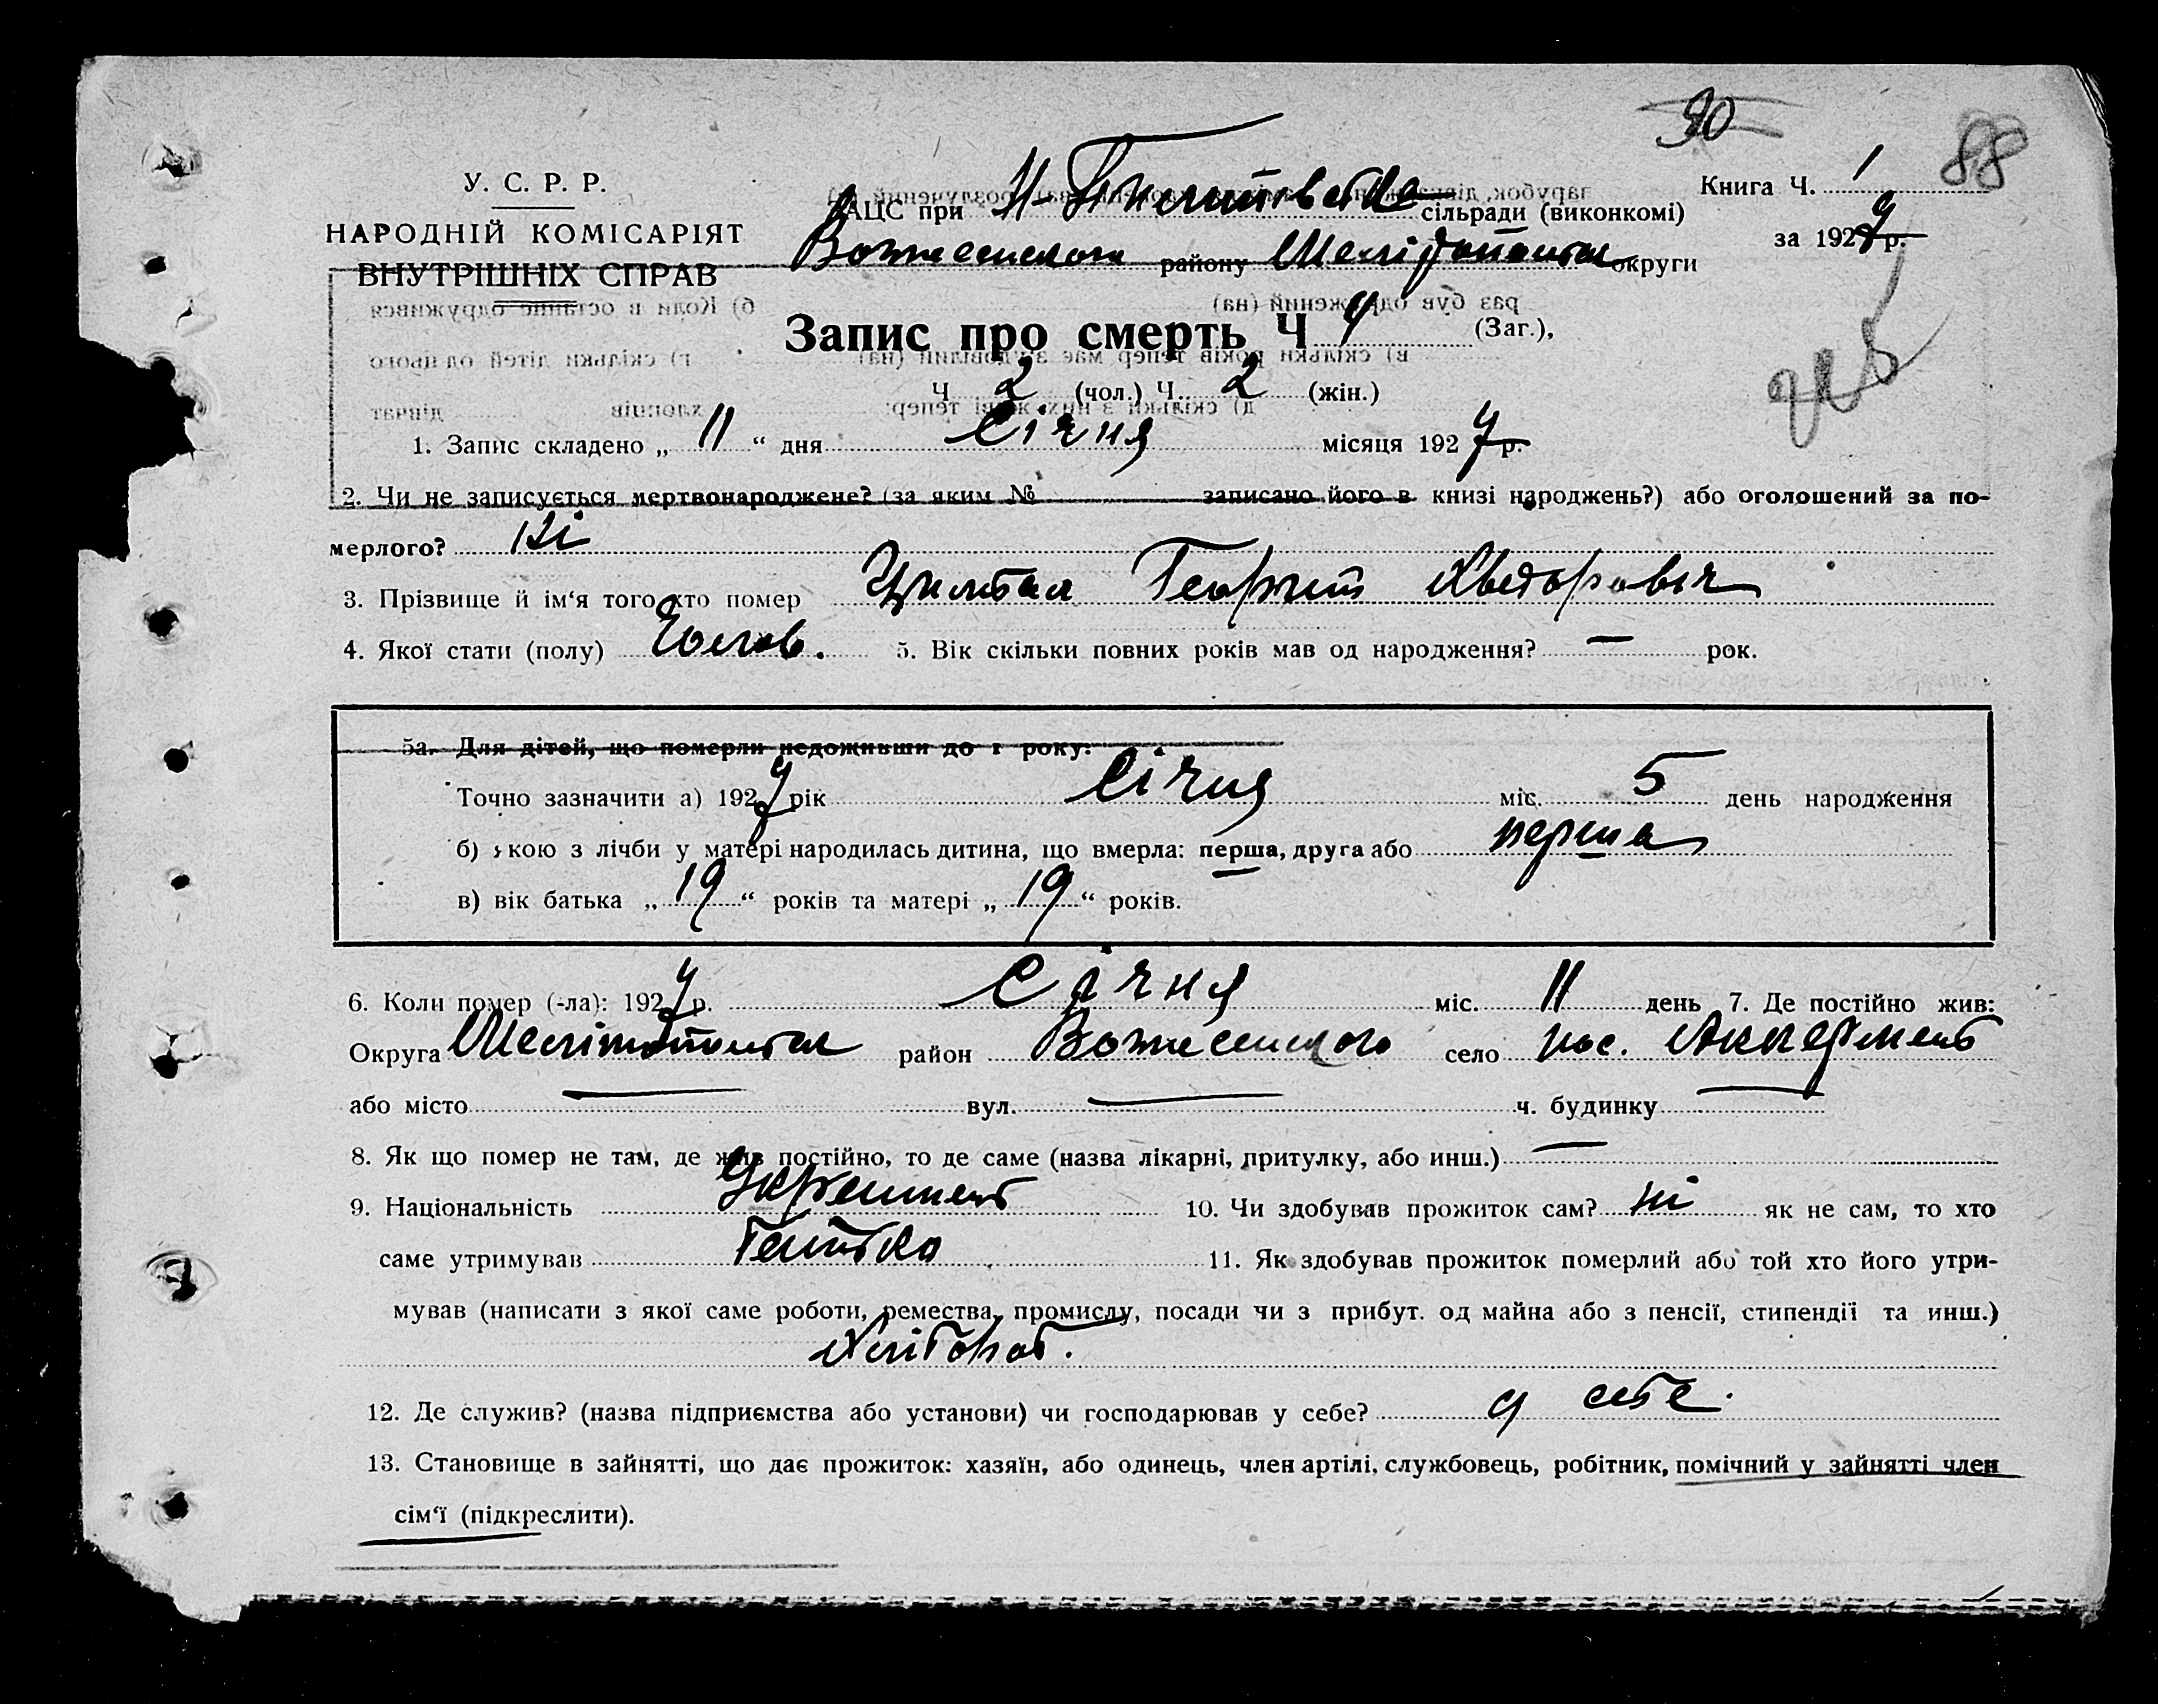 90
88
У. С. Р. Р.
НАРОДНІЙ КОМІСАРІЯТ
ВНУТРІШНІХ СПРАВ
ЗАЦС при сільради (виконкомі)
Вознесенского району Мелітопольск округи
Книга Ч. 1
за 1927 р.
Запис про смерть Ч 4 (Заг.),
Ч 2 (чол.) Ч. 2 (жін.)
1. Запис складено „ 11 “ дня Січня місяця 1927 р.
2. Чи не записується мертвонароджене? (за яким № записано його в книзі народжень?) або оголошений за по-
мерлого? Ні
3. Прізвище й ім‘я того хто помер Георгий Хведорович
4. Якої стати (полу) Чолов. 5. Вік скільки повних років мав од народження? — рок.
5а. Для дітей, що померли недоживши до 1 року:
Точно зазначити а) 1927 рік Січня міс. 5 день народження
б) якою з лічби у матері народилась дитина, що вмерла: перша, друга або перша
в) вік батька „ 19 “ років та матері „ 19 “ років.
6. Коли помер (-ла): 1927 р. Січня міс. 11 день 7. Де постійно жив:
Округа Мелітопольск район Вознесенского село пос. Аккермень
або місто — вул. — ч. будинку —
8. Як що помер не там, де жив постійно, то де саме (назва лікарні, притулку, або инш.) —
9. Національність Українець 10. Чи здобував прожиток сам? ні як не сам, то хто
саме утримував Батько 11. Як здобував прожиток померлий або той хто його утри-
мував (написати з якої саме роботи, ремества, промислу, посади чи з прибут. од майна або з пенсії, стипендії та инш.)
Хлібороб.
12. Де служив? (назва підприємства або установи) чи господарював у себе? у себе.
13. Становище в зайнятті, що дає прожиток: хазяїн, або одинець, член артілі, службовець, робітник, помічний у зайнятті член
сім‘ї (підкреслити).